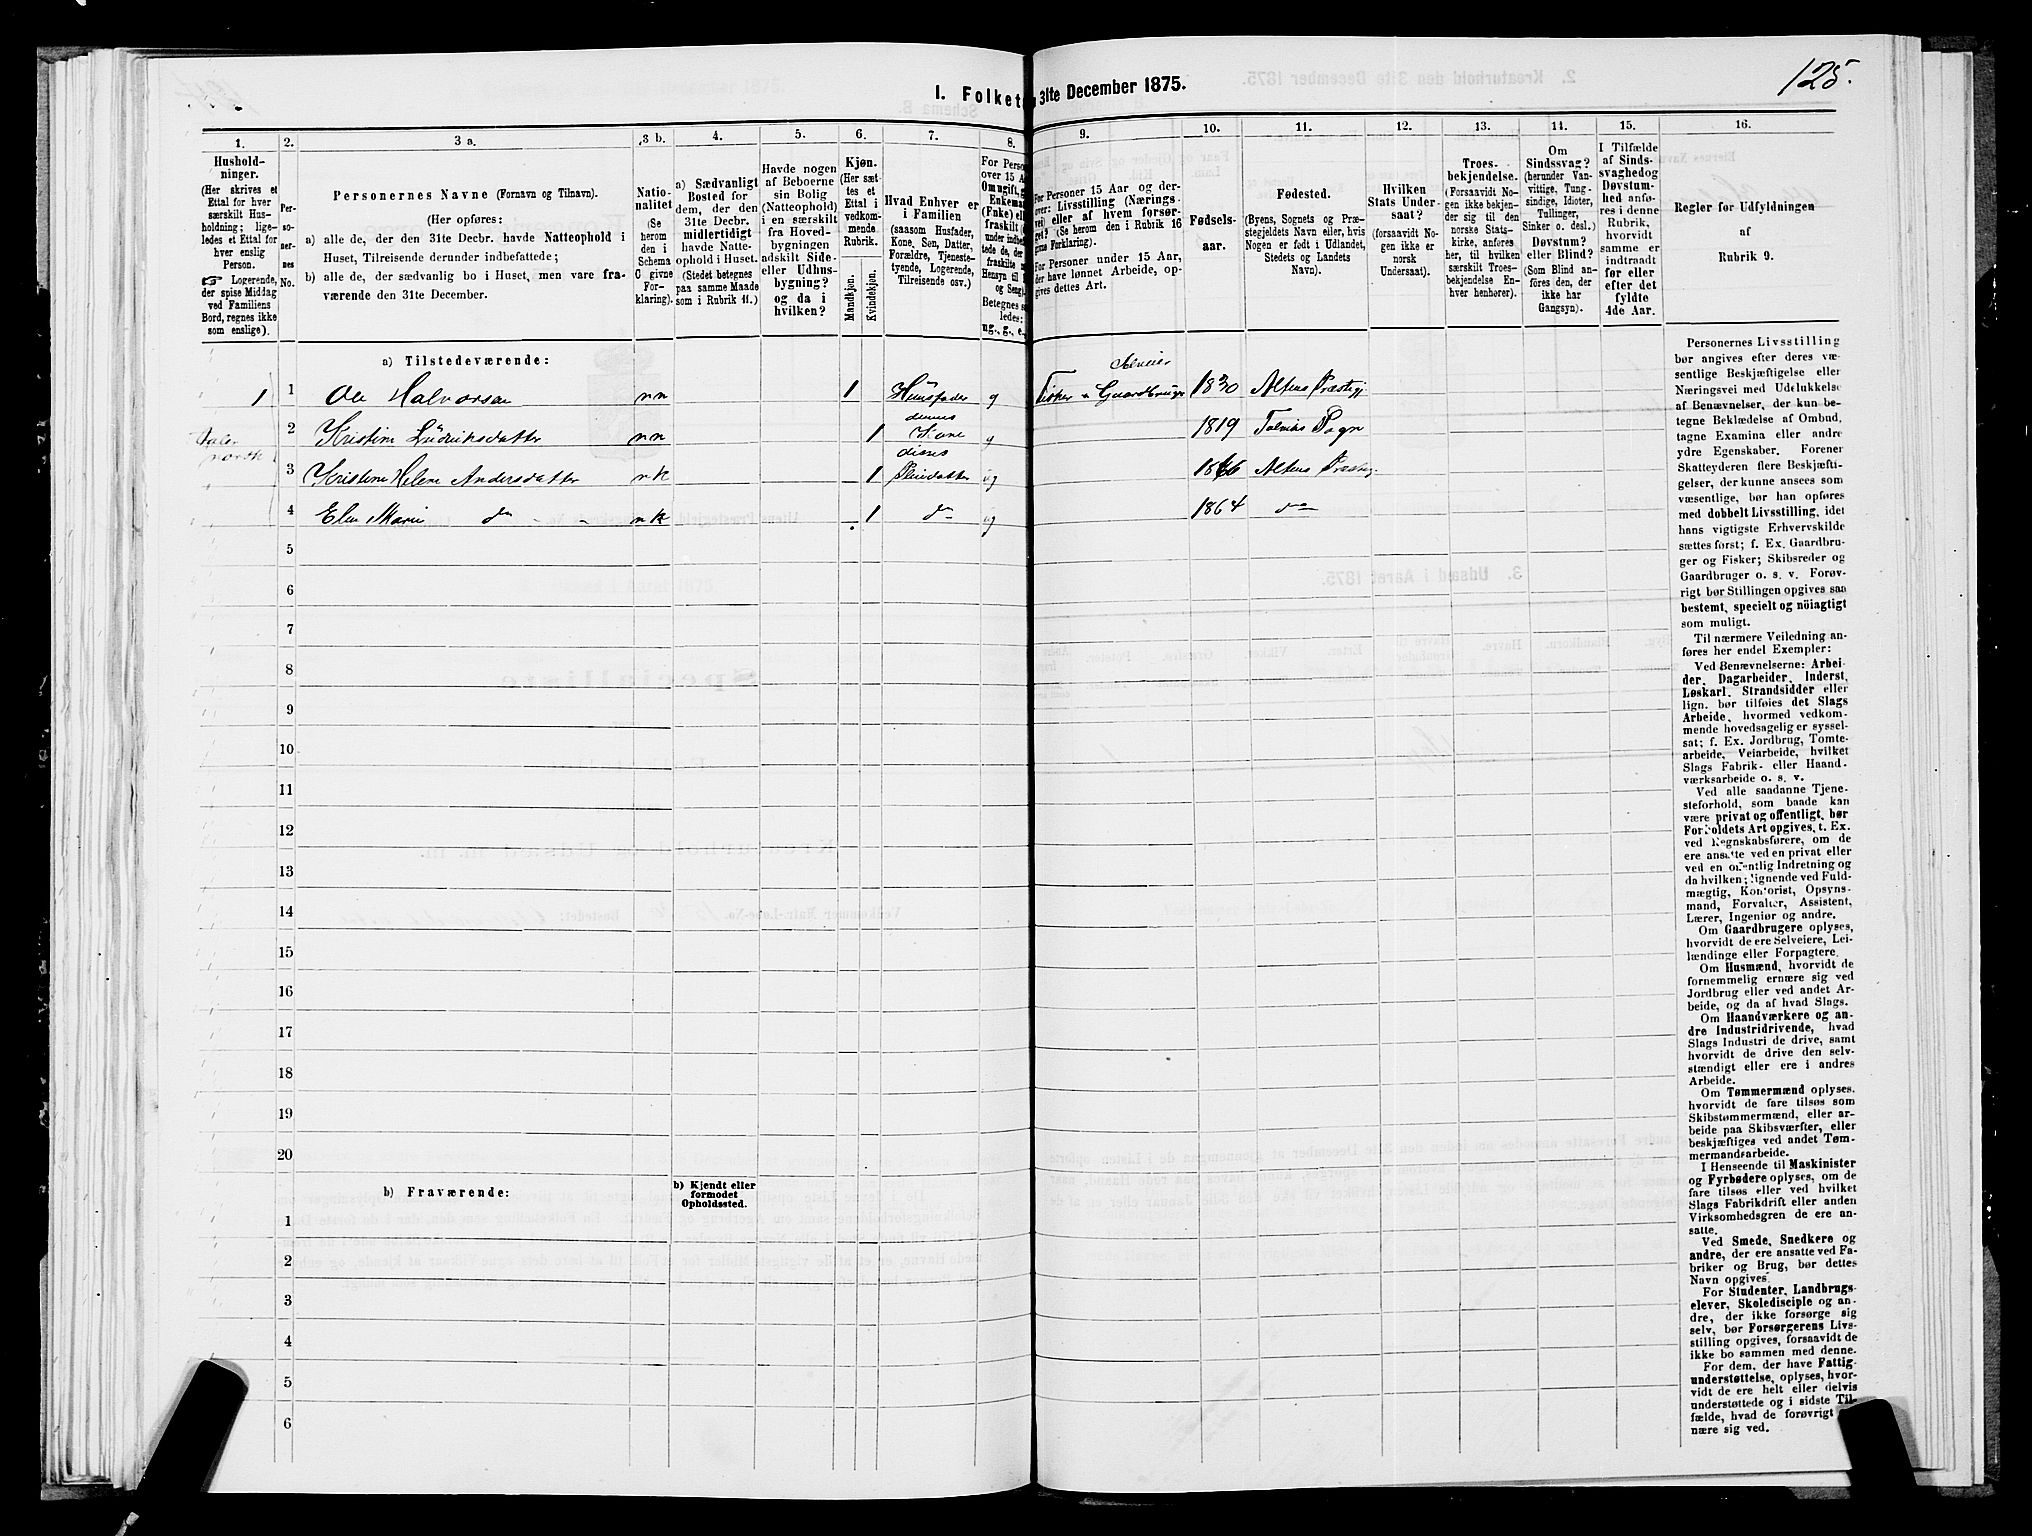 125.
I. Folketæ
31te December 1875.
1.
2.
3 a.
3 b.
4.
5.
6.
7.
8.
9.
10.
11.
12.
13.
14.
15.
16.
Hushold-
ninger.
(Her skrives et
Ettal for hver
særskilt Hus-
holdning; lige-
ledes et Ettal for
hver enslig
Person.
☞ Logerende,
der spise Middag
ved Familiens
Bord, regnes ikke
som enslige).
Per-
so-
ner-
nes
No.
Personernes Navne (Fornavn og Tilnavn).
(Her opføres:
a) alle de, der den 31te Decbr. havde Natteophold i
Huset, Tilreisende derunder indbefattede;
b) alle de, der sædvanlig bo i Huset, men vare fra-
værende den 31te December.
Natio-
nalitet
(Se
herom
den i
Schema
C givne
For-
klaring).
a) Sædvanligt
Bosted for
dem, der den
31te Decbr.
midlertidigt
havde Natte-
ophold i Huset.
(Stedet betegnes
paa samme Maade
som i Rubrik 11.)
Havde nogen
af Beboerne
sin Bolig
(Natteophold)
i en særskilt
fra Hoved-
bygningen
adskilt Side-
eller Udhus-
bygning?
og da i
hvilken?
Kjøn.
(Her sæt-
tes et
Ettal i
vedkom-
mende
Rubrik.
Mandkjøn.
Kvindekjøn.
Hvad Enhver er
i Familien
(saasom Husfader,
Kone, Søn, Datter,
Forældre, Tjeneste-
tyende, Logerende,
Tilreisende osv.)
For Perso
over 15 A
Omugift, g
Enkema
(Fnke) ell
fraskilt (
under indbef
tede de, de
fraskilte
Hensyn til
og Seng).
Betegnes s
ledes:
ug., g., e.,
For Personer 15 Aar og der-
over: Livsstilling (Nærings-
vei) eller af hvem forsør-
get? (Se herom den i Rubrik 16
givne Forklaring).
For Personer under 15 Aar,
der have lønnet Arbeide, op-
gives dettes Art.
Fødsels-
aar.
Fødested.
(Byens, Sognets og Præ-
stegjeldets Navn eller, hvis
Nogen er født i Udlandet,
Stedets og Landets
Navn).
Hvilken
Stats Under-
saat?
(forsaavidt No-
gen ikke er
norsk
Undersaat).
Troes-
bekjendelse.
(Forsaavidt No-
gen ikke bekjen-
der sig til den
norske Stats-
kirke, anføres
her, til hvilken
særskilt Troes-
bekjendelse En-
hver henhører).
Om
Sindssvag?
(herunder Van-
vittige, Tung-
sindige, Idioter,
Tullinger,
Sinker o. desl.)
Døvstum?
eller Blind?
(Som Blind an-
føres den, der
ikke har
Gangsyn).
I Tilfælde
af Sinds-
svaghedog
Døvstum-
hed anfø-
res i denne
Rubrik,
hvorvidt
samme er
indtraadt
før eller
efter det
fyldte
4de Aar.
Regler for Udfyldningen
af
Rubrik 9.
a) Tilstedeværende:
Selveier
1 1 Ole Halvorsen nn 1 Huusfader g Fisker o Gaardbruger 1830 Altens Præstgj
2 Kristine Ludriksdatter nn 1 dennes Kone g 1819 Talviks Sogn
3 Kristine Helene Andersdatter nk 1 disses Pleiedatter ug 1866 Altens Præstegj.
4 Elen Marie do nk 1 do ug 1864 do
Taler
norsk
5
6
7
8
9
10
11
12
13
14
15
16
17
18
19
20
b) Fraværende:
b) Kjendt eller
formodet
Opholdssted.
1
2
3
4
5
6
Personernes Livsstilling
bør angives efter deres væ-
sentlige Beskjæftigelse eller
Næringsvei med Udelukkelse
af Benævnelser, der kun be-
tegne Beklædelse af Ombud,
tagne Examina eller andre
ydre Egenskaber. Forener
Skatteyderen flere Beskjæfti-
gelser, der kunne ansees som
væsentlige, bør han opføres
med dobbelt Livsstilling, idet
hans vigtigste Erhvervskilde
sættes først; f. Ex. Gaardbru-
ger og Fisker; Skibsreder og
Gaardbruger o. s. v. Forøv-
rigt bør Stillingen opgives saa
bestemt, specielt og nöiagtigt
som muligt.
Til nærmere Veiledning an-
føres her endel Exempler:
Ved Benævnelserne: Arbei-
der, Dagarbeider, Inderst,
Løskarl, Strandsidder eller
lign. bør tilføies det Slags
Arbeide, hvormed vedkom-
mende hovedsagelig er syssel-
sat; f. Ex. Jordbrug, Tomte-
arbeide, Veiarbeide, hvilket
Slags Fabrik- eller Haand-
værksarbeide o. s. v.
Ved alle saadanne Tjene-
steforhold, som baade kan
være privat og offentligt, bør
Forholdets Art opgives, t. Ex.
ved Regnskabsførere, om de
ere ansatte ved en privat eller
ved en offentlig Indretning og
da hvilken; lignende ved Fuld-
mægtig, Kontorist, Opsyns-
mand, Forvalter, Assistent,
Lærer, Ingeniør og andre.
Om Gaardbrugere oplyses,
hvorvidt de ere Selveiere, Lei-
lændinge eller Forpagtere.
Om Husmænd, hvorvidt de
fornemmelig ernære sig ved
Jordbrug eller ved andet Ar-
beide, og da af hvad Slags.
Om Haandværkere og an-
dre Industridrivende, hvad
Slags Industri de drive, samt
hvorvidt de drive den selv-
stændigt eller ere i andres
Arbeide.
Om Tømmermænd oplyses,
hvorvidt de fare tilsøs som
Skibstømmermænd, eller ar-
beide paa Skibsværfter, eller
beskjæftiges ved andet Tøm-
mermandsarbeide.
I Henseende til Maskinister
og Fyrbødere oplyses, om de
fare tilsøs eller ved hvilket
Slags Fabrikdrift eller anden
Virksomhedsgren de ere an-
satte.
Ved Smede, Snedkere og
andre, der ere ansatte ved Fa-
briker og Brug, bør dettes
Navn opgives.
For Studenter, Landbrugs-
elever, Skoledisciple og an-
dre, der ikke forsørge sig
selv, bør Forsørgerens Livs-
stilling opgives, forsaavidt de
ikke bo sammen med denne.
For dem, der have Fattig-
understøttelse, oplyses, hvor-
vidt de ere helt eller delvis
understøttede og i sidste Til-
fælde, hvad de forøvrigt er-
nære sig ved.